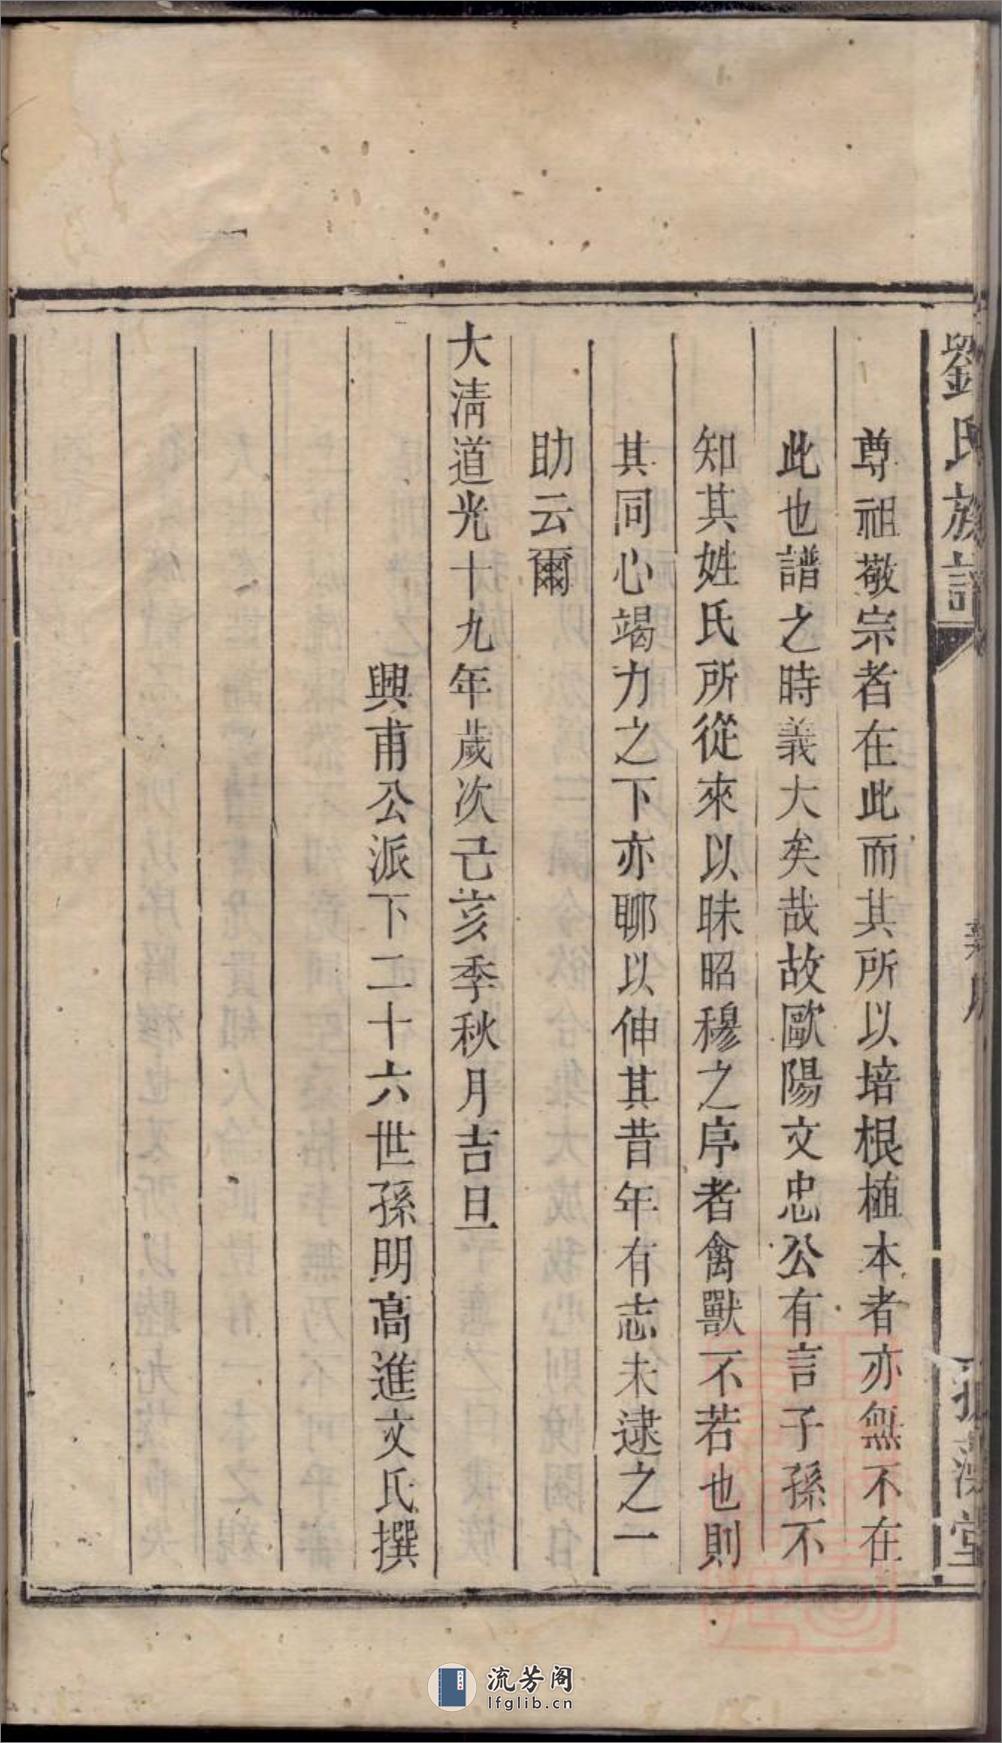 劉氏族譜
尊祖敬宗者在此而其所以培根植本者亦無不在
此也譜之時義大矣哉故歐陽文忠公有言子孫不
知其姓氏所從來以昧昭穆之序者禽獸不若也則
其同心竭力之下亦聊以伸其昔年有志未逮之一
助云爾
大清道光十九年歲次己亥季秋月吉旦
興甫公派下二十六世孫明高進文氏撰
流芳阁
lfglib.cn